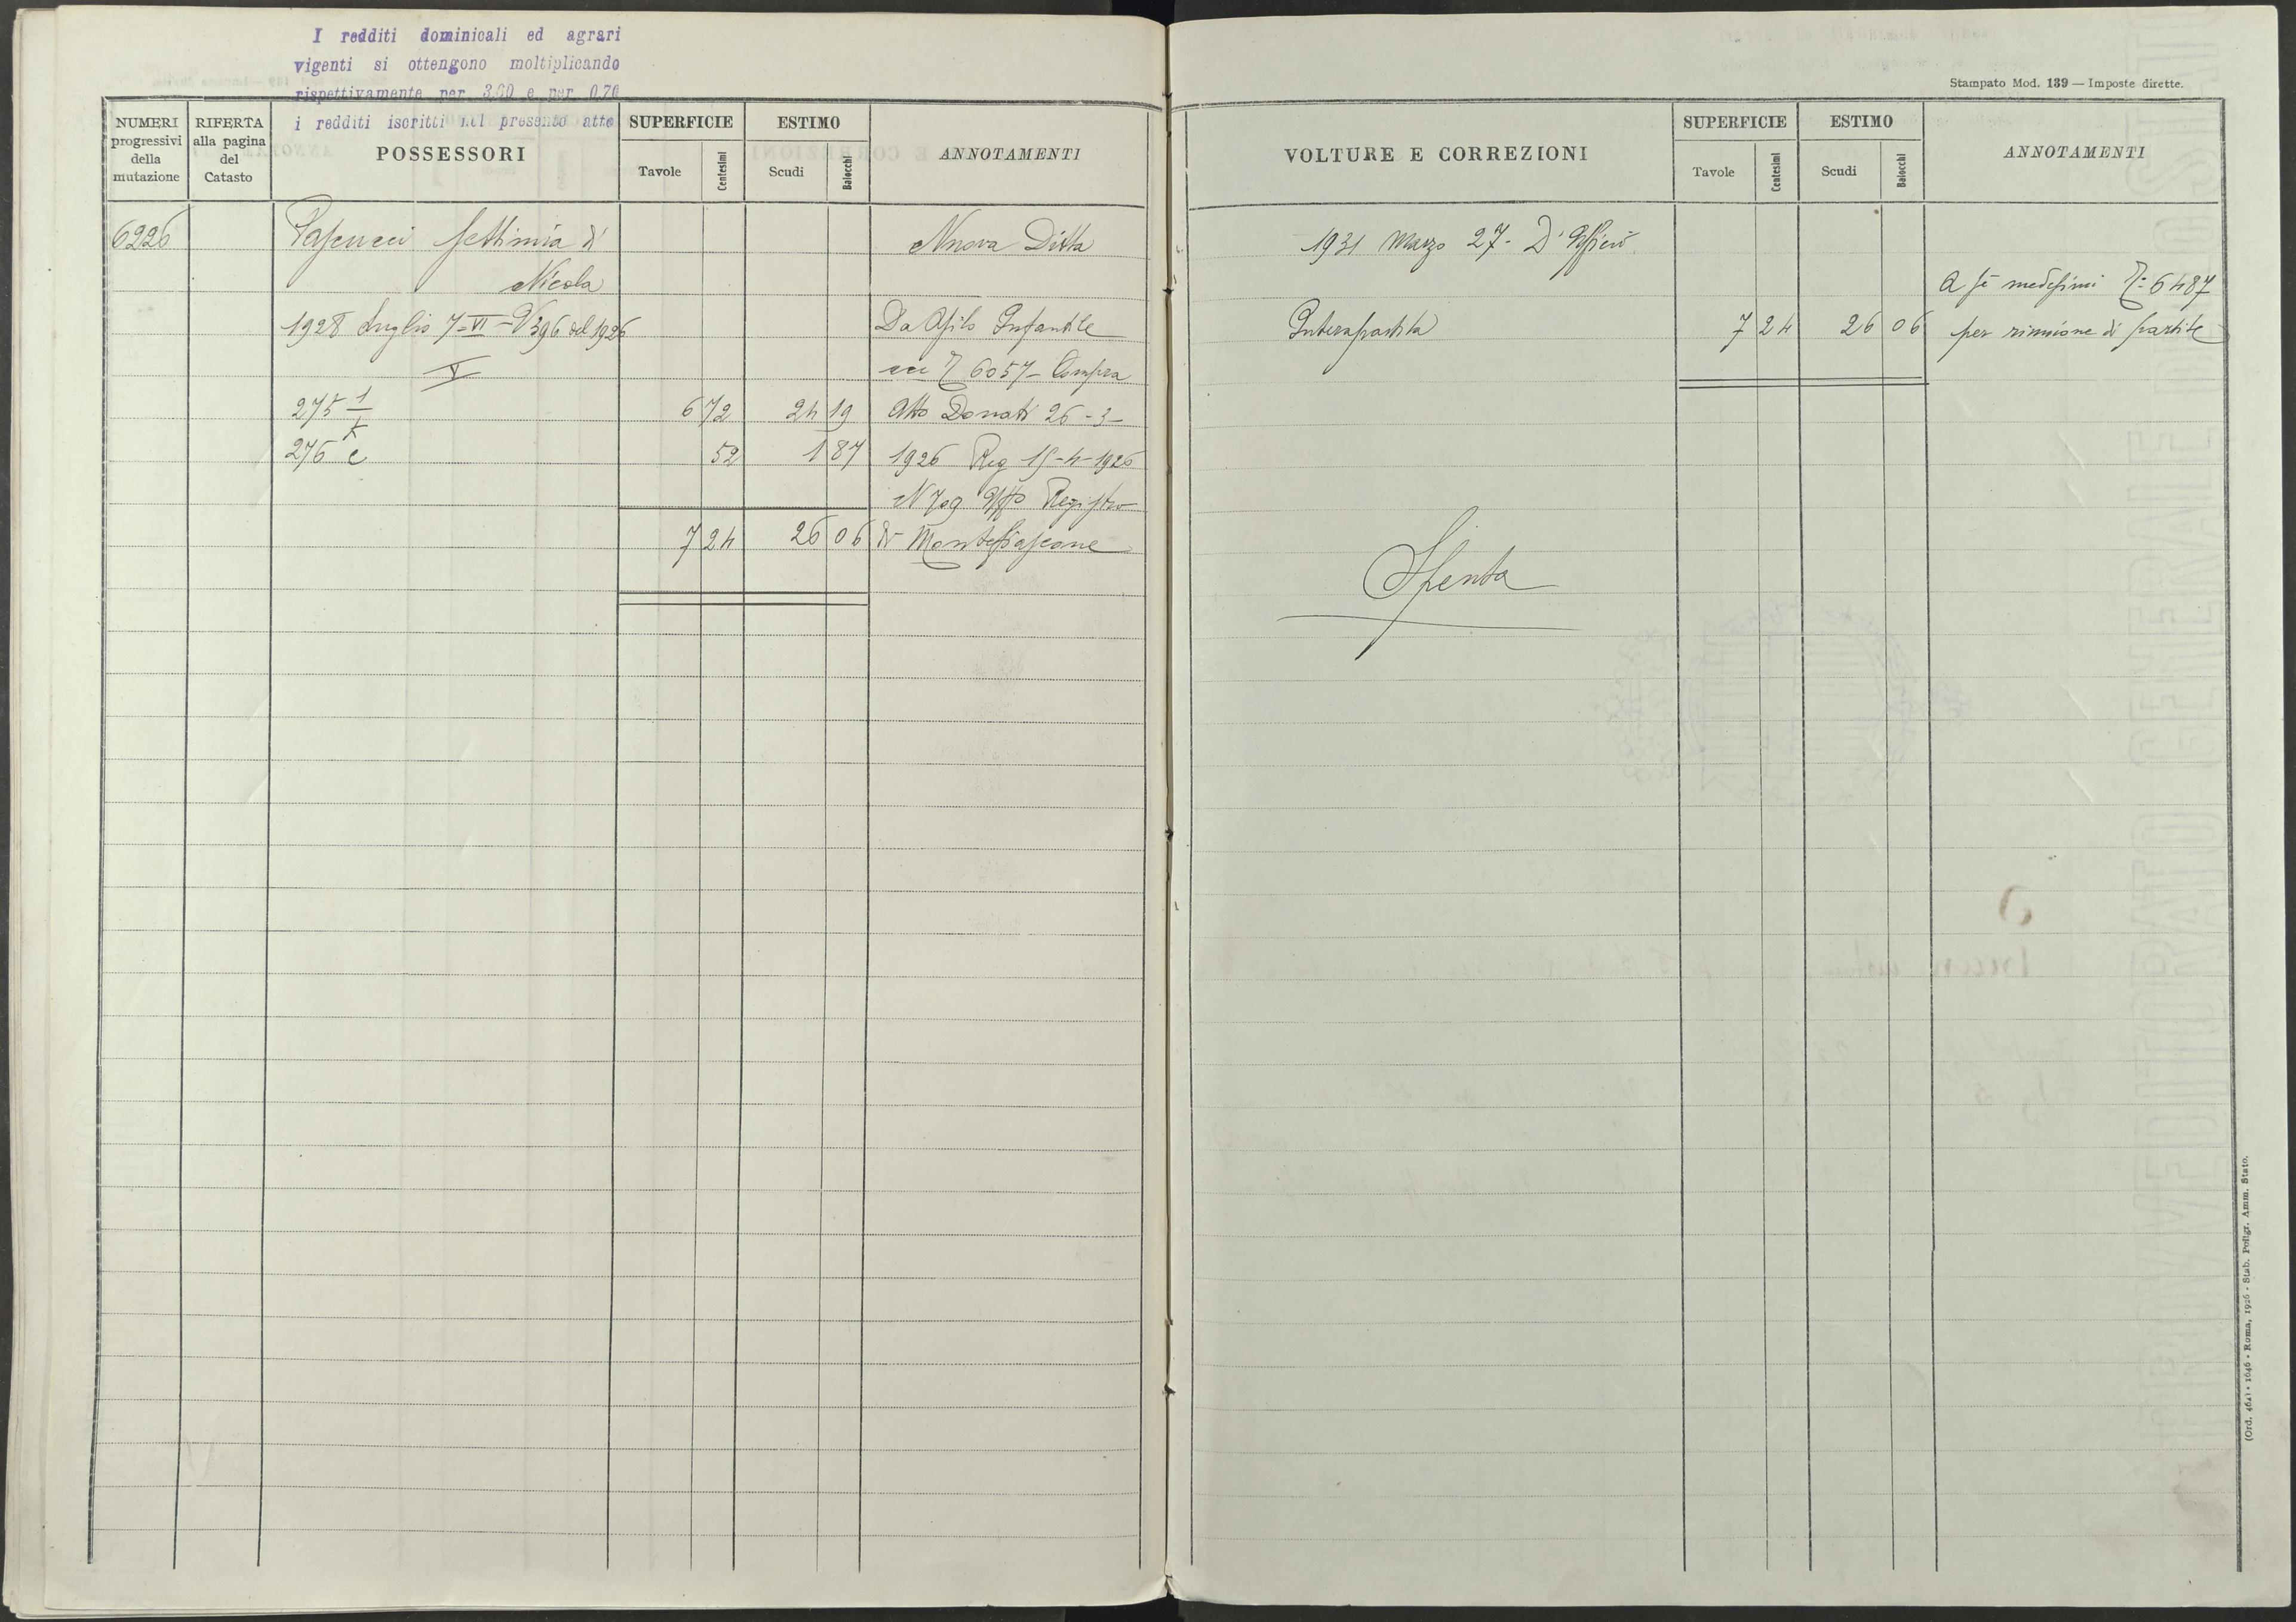 I redditi dominicali ed agrari
vigenti si ottengono moltiplicando
rispettivamente per 3.60 e per 0.70
i redditi iscritti nel presente atto
NUMERI progressivi della mutazione
RIFERTA alla pagina del Catasto
POSSESSORI
SUPERFICIE
Tavole
Centesimi
ESTIMO
Scudi
Baiocchi
ANNOTAMENTI
6226 Pascucci Settimia di Nuova Ditta
Nicola
1928 Luglio 7-VI-V 396 del 1926 Da Asilo Infantile
V ecc 6057- Compra
275 1/ 6 72 24 19 Atto Donati 26-3-
276 c 52 1 87 1926 Reg 15-4-1926
N 709 Uffo Registro
7 24 26 06 di Montefiascone
Stampato Mod. 139 — Imposte dirette.
VOLTURE E CORREZIONI
SUPERFICIE
Tavole
Centesimi
ESTIMO
Scudi
Baiocchi
ANNOTAMENTI
1931 Marzo 27- D'Ufficio
a se medesimi 6487
Intera partita 7 24 26 06 per riunione di partite
Spenta
(Ord. 464) • 1646 • Roma, 1926 - Stab. Poligr. Amm. Stato.